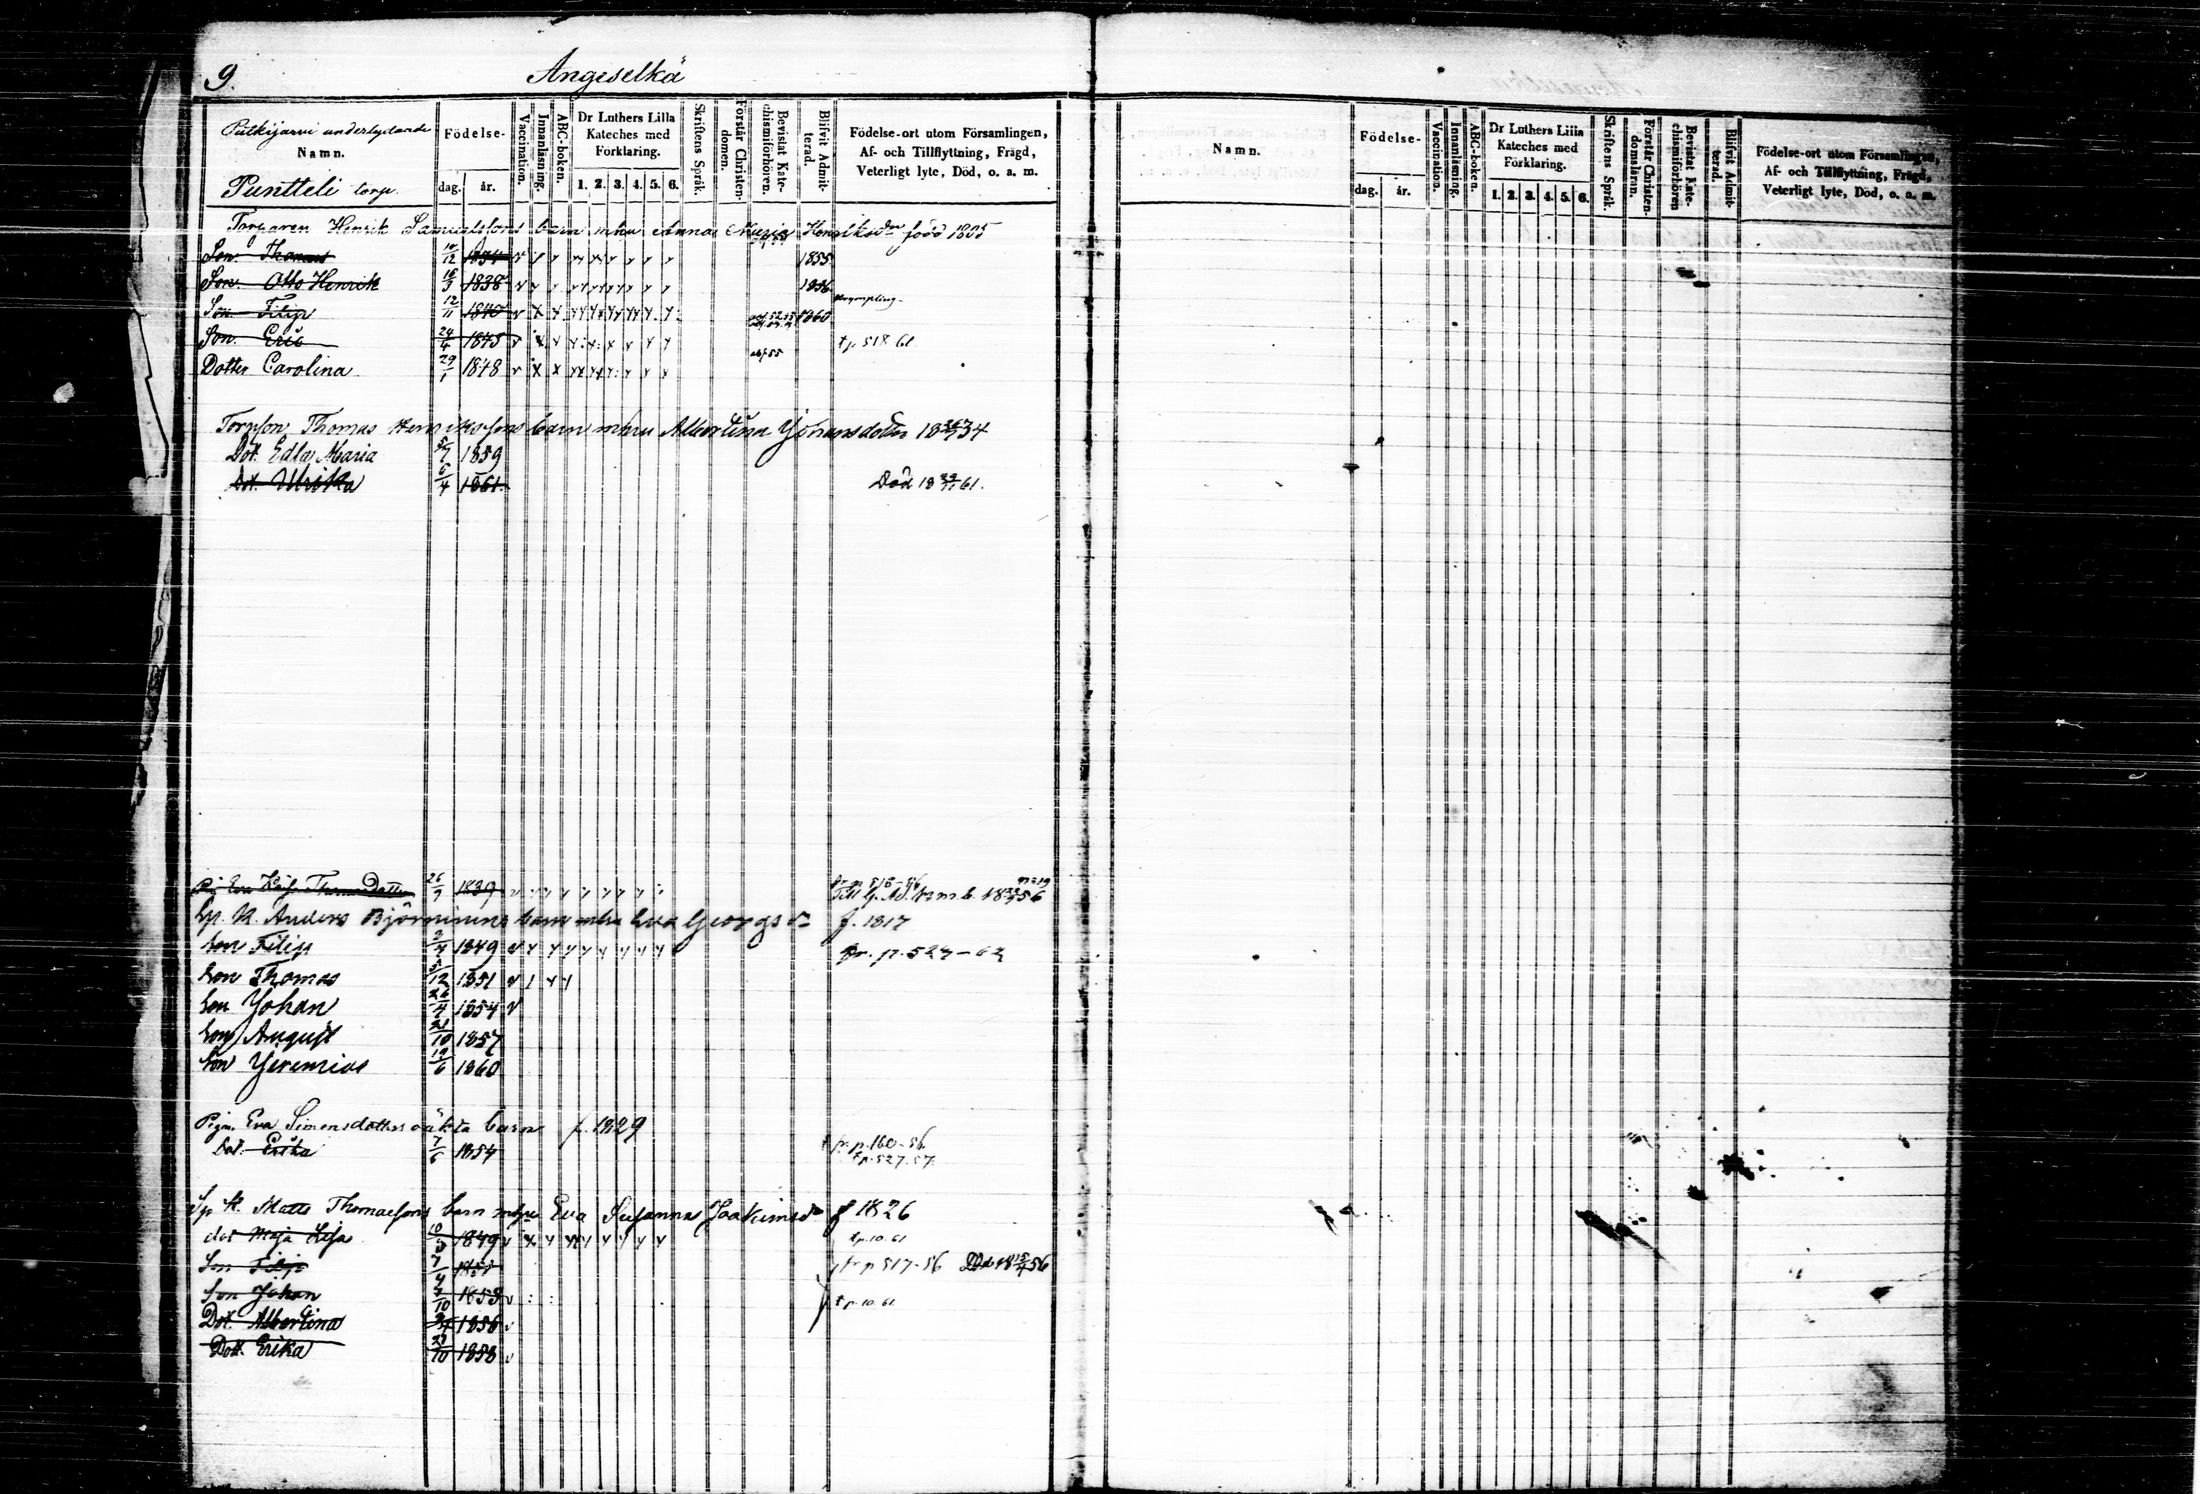 9.
Angeselkä
Putkijarvi underlydande
Namn.
Puntteli torp.
Födelse-
dag. år.
Vaccination.
Innanläsning.
ABC-boken.
Dr Luthers Lilla Kateches med Förklaring.
1. 2. 3. 4. 5. 6.
Skriftens Språk.
Förstår Christendomen.
Bevistat Katechismiförhören.
Blifvit Admitterad.
Födelse-ort utom Församlingen, Af- och Tillflyttning, Frägd, Veterligt lyte, Död, o. a. m.
Torparen Henrik Samuelssons barn mhu Anna Maria Henriksdr född 1805
Son. Thomas 10/12 1834 1855
Son. Otto Henrik 16/3 1838 1856
Son Filip 12/11 1840 1860
Son. Eric 24/4 1845 tp 518 61
Dotter Carolina 29/1 1848
Torpson Thomas Henrikssons barn mhu Albertina Johansdotter 34
Dot. Edla Maria 5/7 1859
Dot. Ulrika 6/4 1861. Död 61.
Pig Eva Kajsa Thomasdotter 26/9 1839
Anders Björninens barn mhu Eva Georgsd f. 1817
Son Filip 2/4 1849 fr. p. 527-62
Son Thomas 5/12 1851
Son Johan 26/4 1854
Son August 21/10 1857
Son Jeremias 19/6 1860
Pigan Eva Simonsdotters oäkta barn f. 1829
Dot. Erika 7/6 1854 fr. p. 160-56
tp. 527. 57.
Matts Thomassons barn mhu Eva Susanna Joakimsd f 1826
dot Maja Lisa 1849 tp. 10. 61
Son Filip fr p 517-56 Död 56
Son Johan 1853 tp. 10. 61.
Dot. Albertina 1856
Dott. Erika 1858
Namn.
Födelse-
dag. år.
Vaccination.
Innanläsning.
ABC-boken.
Dr Luthers Lilla Kateches med Förklaring.
1. 2. 3. 4. 5. 6.
Skriftens Språk.
Förstår Christendomsläran.
Bevistat Katechismiförhören
Blifvit Admitterad.
Födelse-ort utom Församlingen, Af- och Tillflyttning, Frägd, Veterligt lyte, Död, o. a. m.